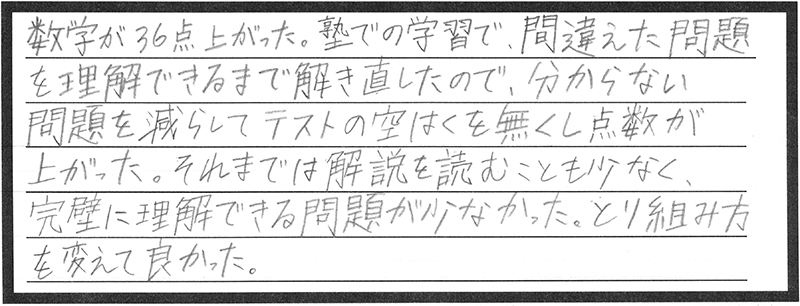 数学が36点上がった。塾での学習で、間違えた問題
を理解できるまで解き直したので、分からない
問題を減らしてテストの空はくを無くし点数が
上がった。それまでは解説を読むことも少なく、
完璧に理解できる問題が少なかった。とり組み方
を変えて良かった。